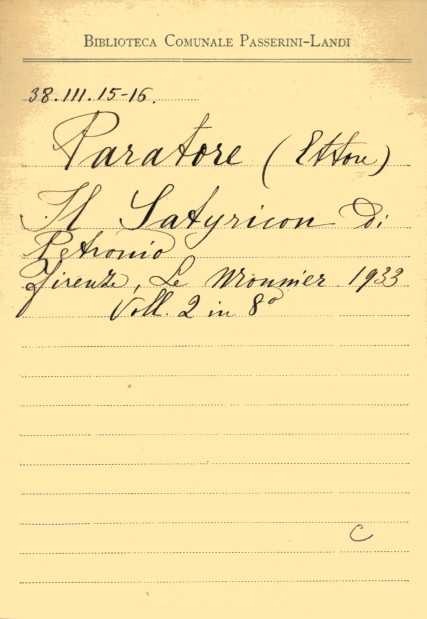 BIBLIOTECA COMUNALE PASSERINI-LANDI
38.III.15-16.
Paratore (Ettore)
Il Satyricon di
Petronio
Firenze, Le Monnier 1933
Voll. 2 in 8°
C